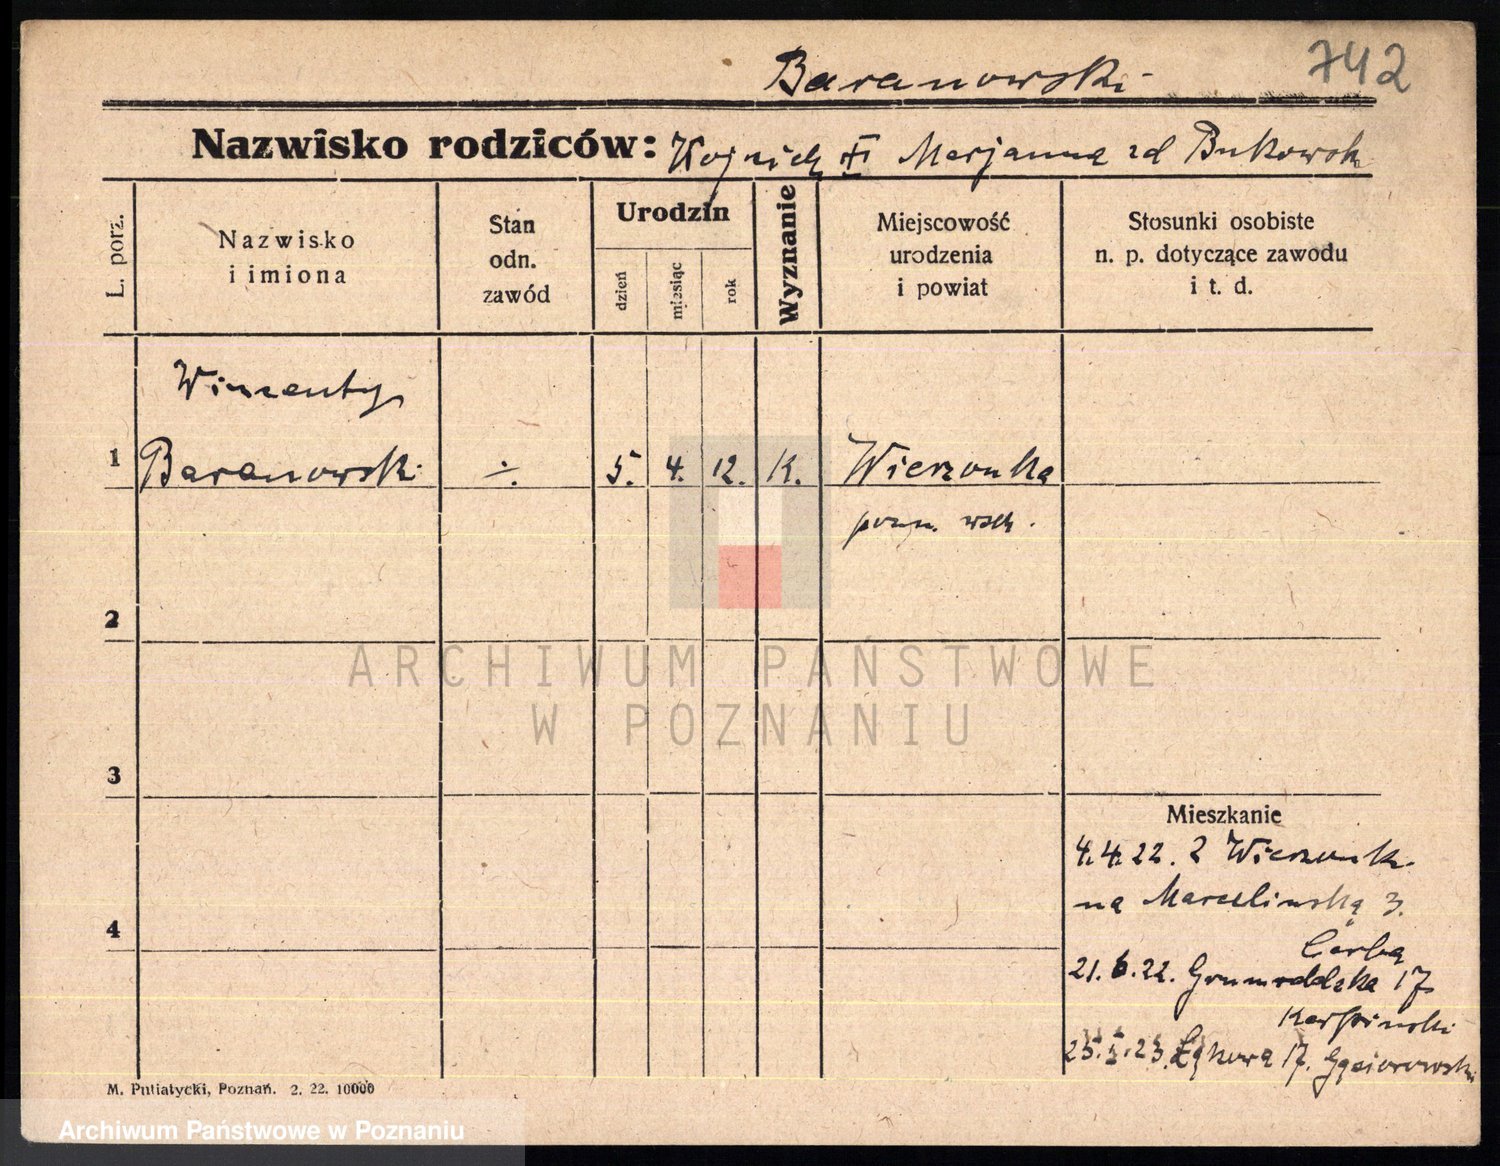 Baranowski 742
Nazwisko rodziców: Wojciech Marjanna zd Bukowsk
L. porz.
Nazwisko
i imiona
Stan
odn.
zawód
Urodzin
dzień
miesiąc
rok
Wyznanie
Miejscowość
urodzenia
i powiat
Stosunki osobiste
n. p. dotyczące zawodu
i t. d.
Wincenty
1 Baranowski ÷. 5. 4. 12. K. Wierzonka
pozn. wsch.
2
3
4
ARCHIWUM PAŃSTWOWE
W POZNANIU
Mieszkanie
4.4.22. z Wierzonk.
na Marcelińską 3.
21.6.22. Grunwaldzka 17
Karpinski
23. Łąkowa 17. Gąsiorowski
M. Putiatycki, Poznań. 2. 22. 10000
Archiwum Państwowe w Poznaniu